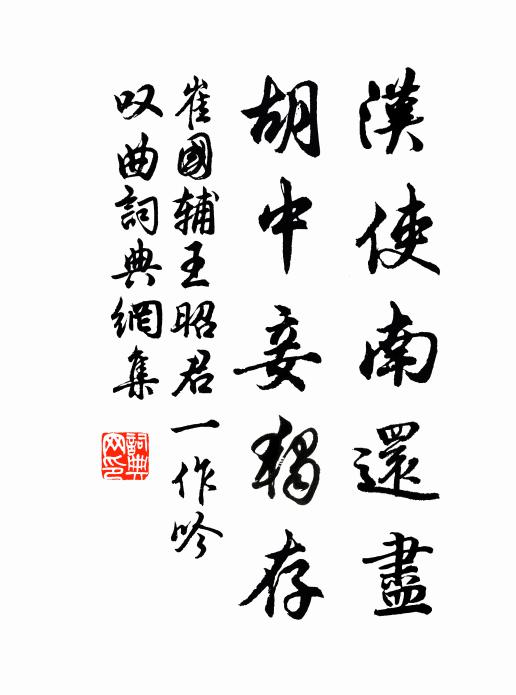 漢使南還盡
胡中妾獨存
崔國輔王昭君一作吟
叹曲詞典網集
詞典网印